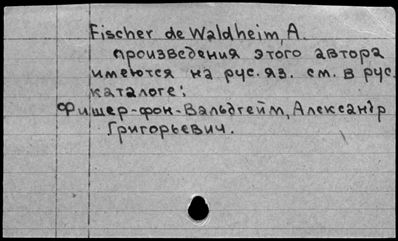 Fischer de Waldheim, A.
произведения этого автора
имеются на рус. яз. см. в рус.
каталоге:
Фишер-фон-Вальдгейм, Александр
Григорьевич.